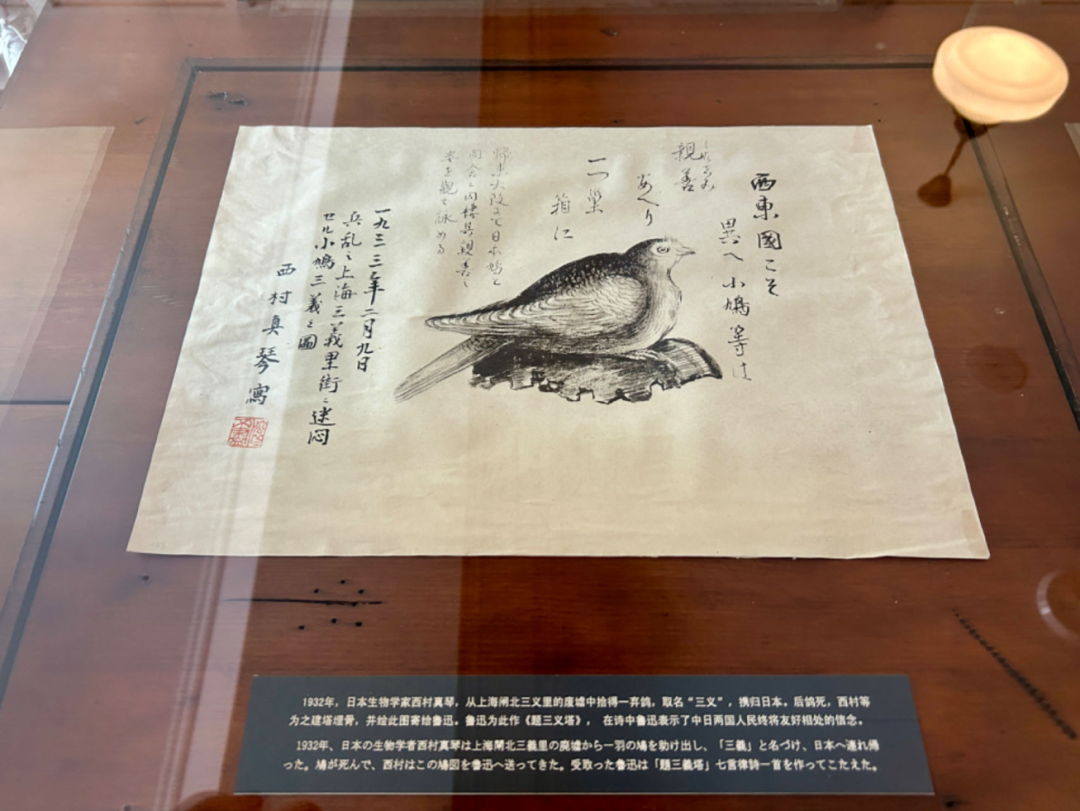 西東國こそ
異へ小鳩等は
親善
あへり
一つ巣
箱に
一九三三年二月九日
兵乱ニ上海三義里街ニ迷悶
セル小鳩三義之圖
西村真琴寫
1932年，日本生物学家西村真琴，从上海闸北三义里的废墟中拾得一弃鸽，取名“三义”，携归日本。后鸽死，西村等
为之建塔埋骨，并绘此图寄给鲁迅。鲁迅为此作《题三义塔》，在诗中鲁迅表示了中日两国人民终将友好相处的信念。
1932年、日本の生物学者西村真琴は上海閘北三義里の廃墟から一羽の鳩を助け出し、「三義」と名づけ、日本へ連れ帰
った。鳩が死んで、西村はこの鳩図を鲁迅へ送ってきた。受取った鲁迅は「題三義塔」七言律詩一首を作ってこたえた。